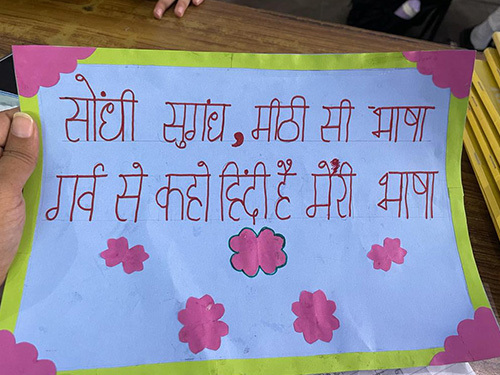 सोंधी सुगंध, मीठी सी भाषा
गर्व से कहो हिंदी है मेरी भाषा